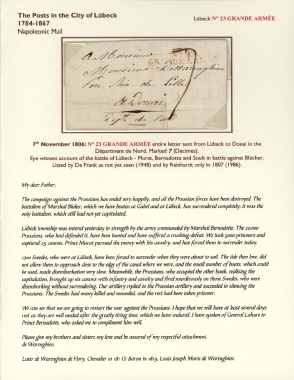 The Posts in the City of Lübeck
1784-1867
Napoleonic Mail
Lübeck Nº 23 GRANDE ARMÉE
A Monsieur
Monsieur
à Douai
7th November 1806: Nº 23 GRANDE ARMÉE entire letter sent from Lübeck to Douai in the
Département de Nord. Marked 7 (Decimes).
Eye witness account of the battle of Lübeck - Murat, Bernadotte and Soult in battle against Blücher.
Listed by De Frank as not yet seen (1948) and by Reinhardt only in 1807 (1986).
My dear Father,
The campaign against the Prussians has ended very happily, and all the Prussian forces have been destroyed. The
battalion of Marshal Bluker, which we have beaten at Gabel and at Lübeck, has surrendered completely; it was the
only battalion, which still had not yet capitulated.
Lübeck township was entered yesterday in strength by the army commanded by Marshal Bernadotte. The
Prussians, who had defended it, have been hunted and have suffered a crushing defeat. We took 3000 prisoners and
captured 25 cannons. Prince Murat pursued the enemy with his cavalry, and has forced them to surrender today.
1200 Swedes, who were at Lübeck, have been forced to surrender when they were about to sail. The tide then low, did
not allow them to approach close to the edge of the canal where we were, and the small number of boats, which could be
used, made disembarkation very slow. Meanwhile, the Prussians, who occupied the other bank, realising the
capitulation, brought up six cannons with infantry and cavalry and fired murderously on those Swedes, who were
disembarking without surrendering. Our artillery replied to the Prussian artillery and succeeded in silencing the
Prussians. The Swedes had many killed and wounded, and the rest had been taken prisoner.
We can see that we are going to restart the war against the Prussians. I hope that we will have at least several days
rest as they are well needed after the greatly tiring time, which we have endured. I have spoken of General Lahure to
Prince Bernadotte, who asked me to compliment him well.
Please give my brothers and sisters my love and be assured of my respectful attachment.
de Warenghien.
Later de Warenghien de Flory. Chevalier in 1811 & baron in 1813, Louis Joseph Marie de Warenghien.